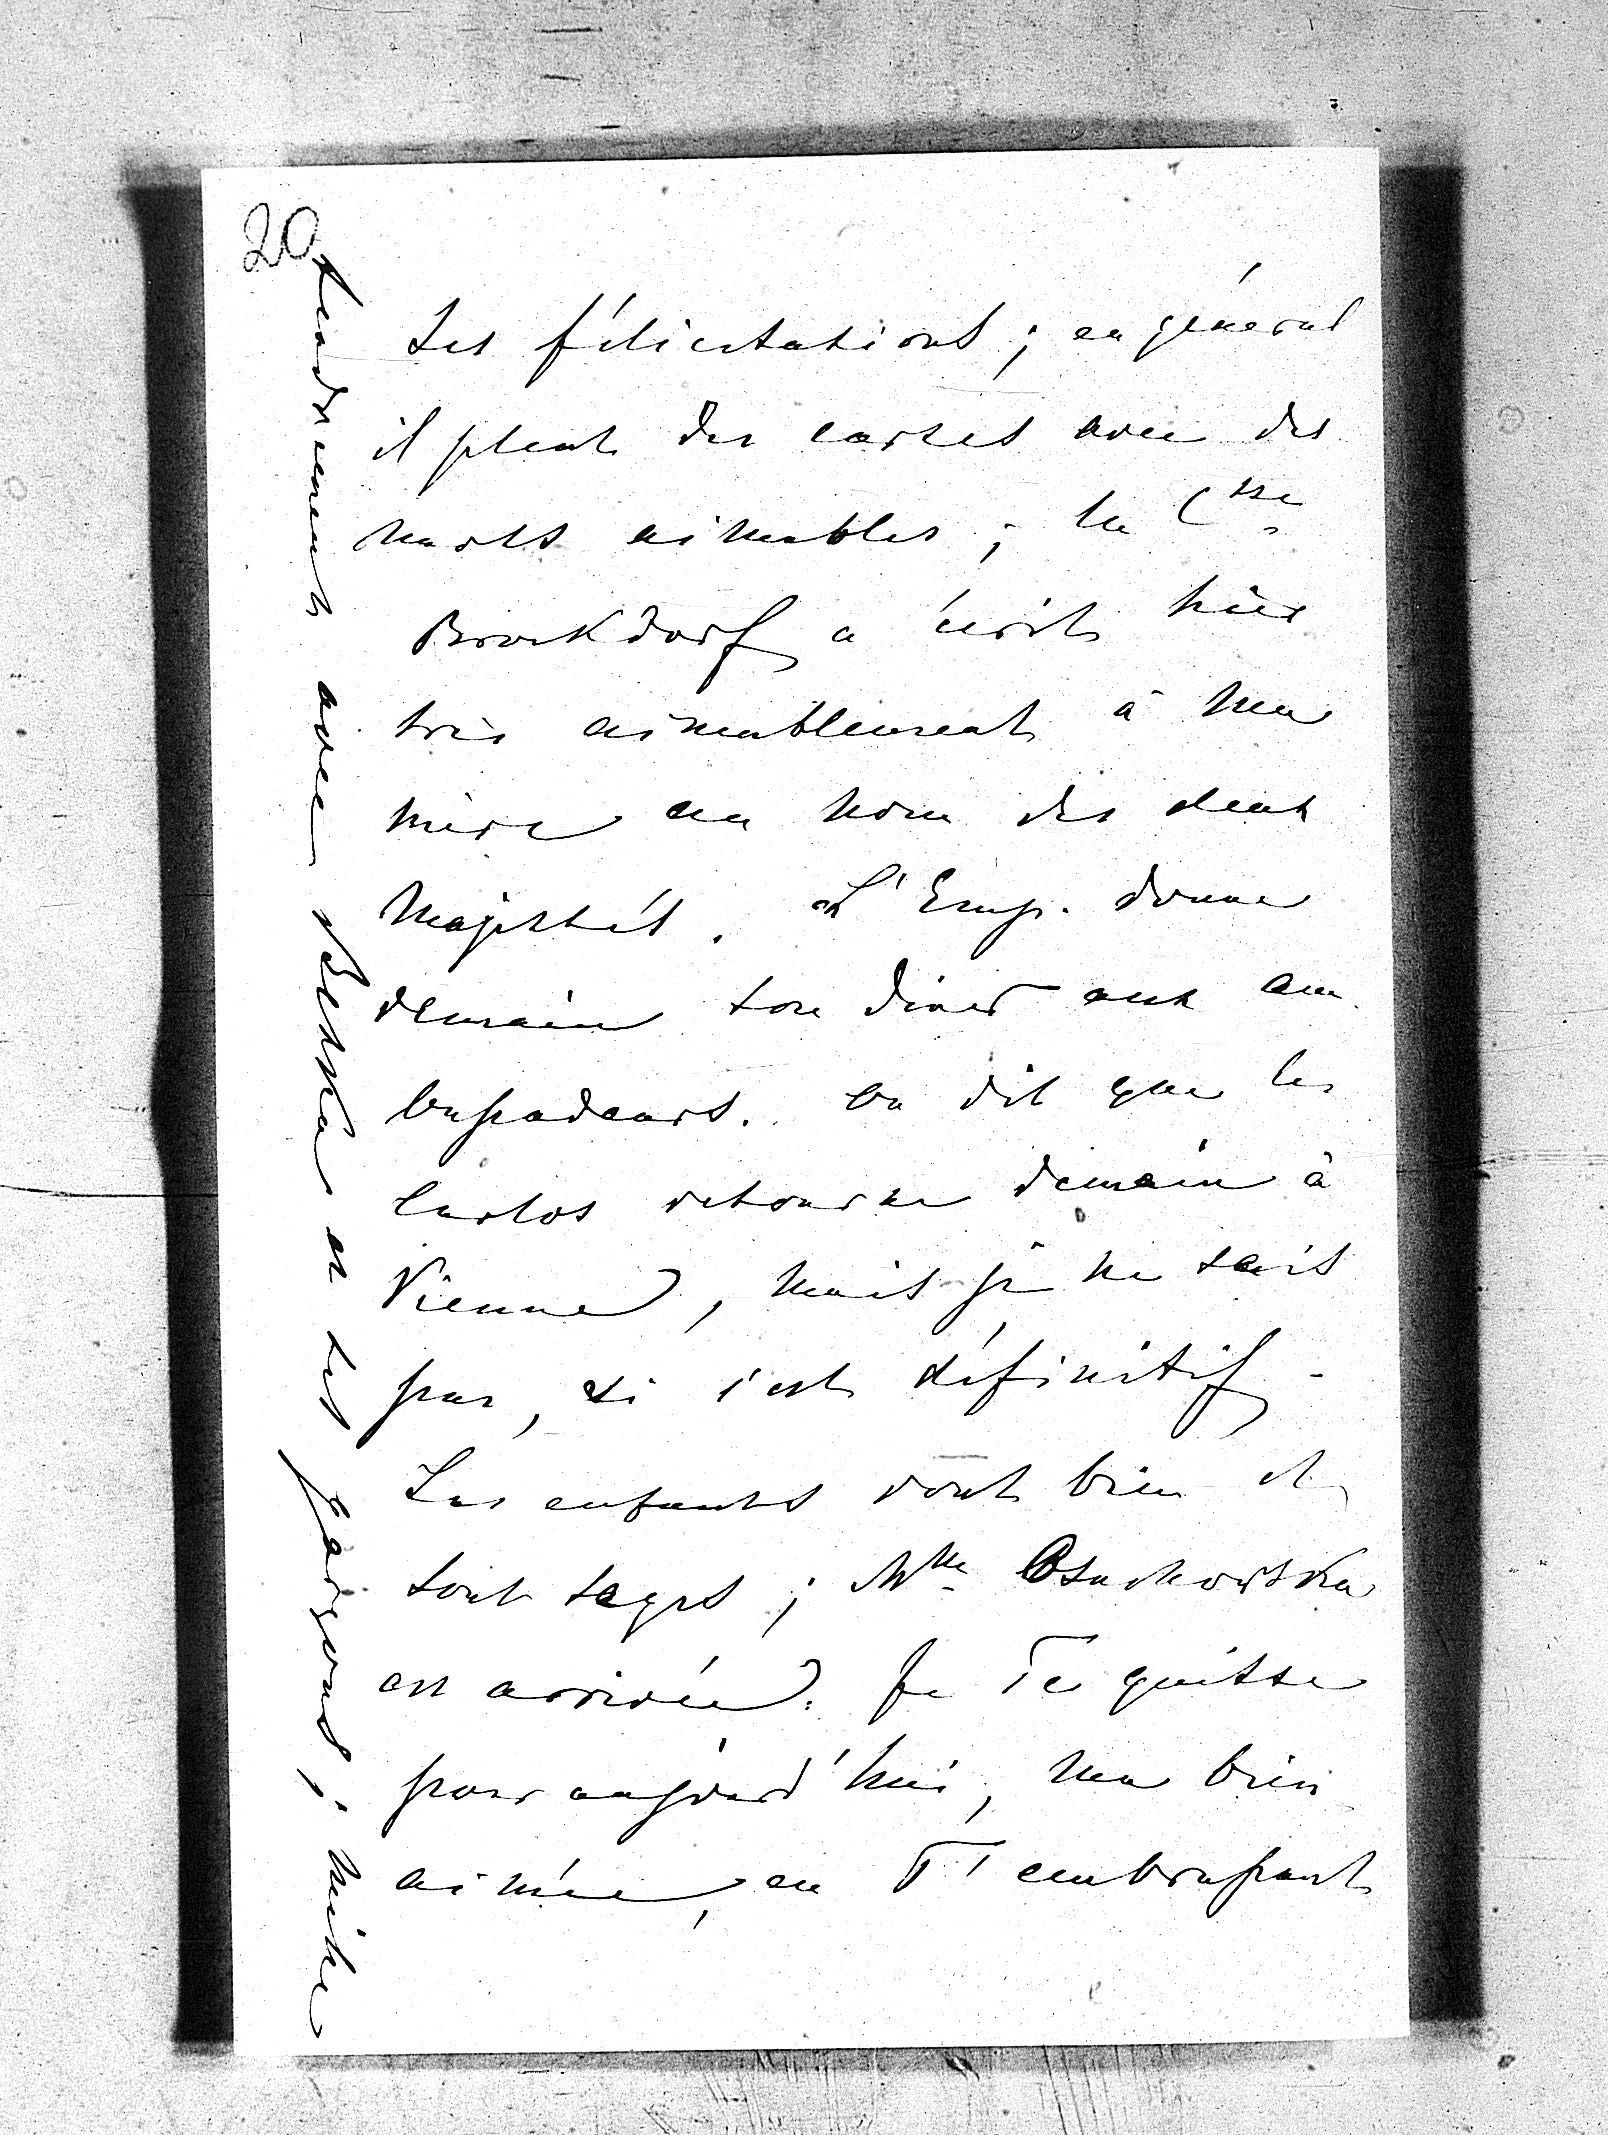 20
ses félicitations ; en général
il pleut des cartes avec des
mots aimables ; la Ctsse
Brockdorf a écrit hier
très aimablement à ma
mère au nom des deux
Majestés. L'Emp. donne
demain son diner aux am-
bassadeurs. On dit que les
Carlos retourne demain à
Vienne, mais je ne sais
pas, si c'est définitif -
Les enfants vont bien et
sont sages ; Mme
est arrivée. Je Te quitte
pour aujourd'hui, ma bien
aimée, en T'embrassant
tendrement avec Betka et les garçons ; mille